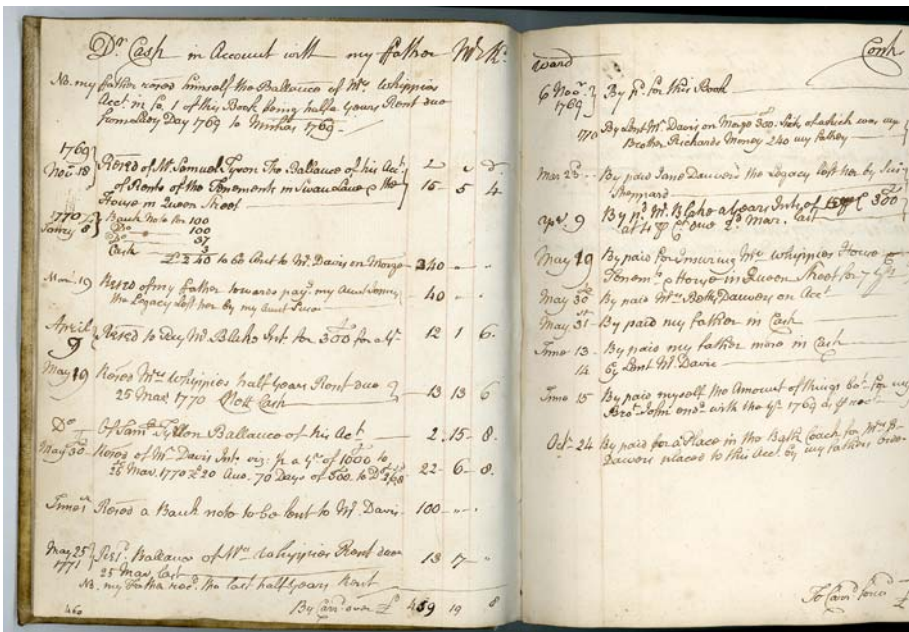 Dr. Cash in Account with my father
No. my father reced himself the Ballance of Mrs Whippies
Acct. in fo. 1 of this Book being half a years Rent due
from Lady Day 1769 to Michas 1769
1769
Nov 18 Reced of Mr. Samuel Tyson The Ballance of his Act
of Rents of the Tenements in Swan Lane & the 15 - 5 4.
House in Queen Street
1770
Janry 8 Bank Note for 100
Do 100
Do 37
Cash 3
£240 to be lent to Mr. Davis on Morge 240 " "
Mar 19 Reced of my father towards payg. my Aunt
the Legacy left her by my Aunt 40 " "
April 9 Reced to pay Mr. Blake Int. for 300 for a yr. 12 1 6.
May 19 Reced Mrs Whippies half years Rent due
25 Mar 1770 Nett Cash 13 13 6
Do Of Saml. Tyson Ballance of his Act 2 - 15 - 8.
May 30 Reced of Mr. Davis Int. viz: for a yr. of 1000 to
25 Mar. 1770 & 70 Days of 22 - 6 - 8.
June Reced a Bank note to be lent to Mr. Davis - 100 - " - .
May 25
1771 Ballance of Mrs Whippies Rent due 13 17 - "
25 Mar. last
No. my father reced. the last half years Rent
460 By Carrd. over £ 439 19 8
ward
6 Novr. 1769 By pd. for this Book
1770 By Lent Mr. Davis on Morge 300. of which was my
Brother Richards Money 240 my father
Mar 23 By paid Jane Dauvers the Legacy left her by
Sheppard
Apr. 9 By pd. Mr. Blake a years Int. of £300
at 4 due Mar. last
May 19 By paid for Insuring Mrs Whippies House &
Tenemts. & House in Queen Street for 7 yrs
May 30 By paid Mrs Betty Dauvers on Acct
May 31st By paid my father in Cash
June 13 - By paid my father more in Cash
14 By Lent Mr. Davis
June 15 By paid myself the Amount of things bot. for my
Bror. John endg. with the yr. 1769 as
Octr. 24 By paid for a Place in the Bath Coach for Mrs B.
Dauvers placed to this Acct. by my fathers order
To Carrd. £